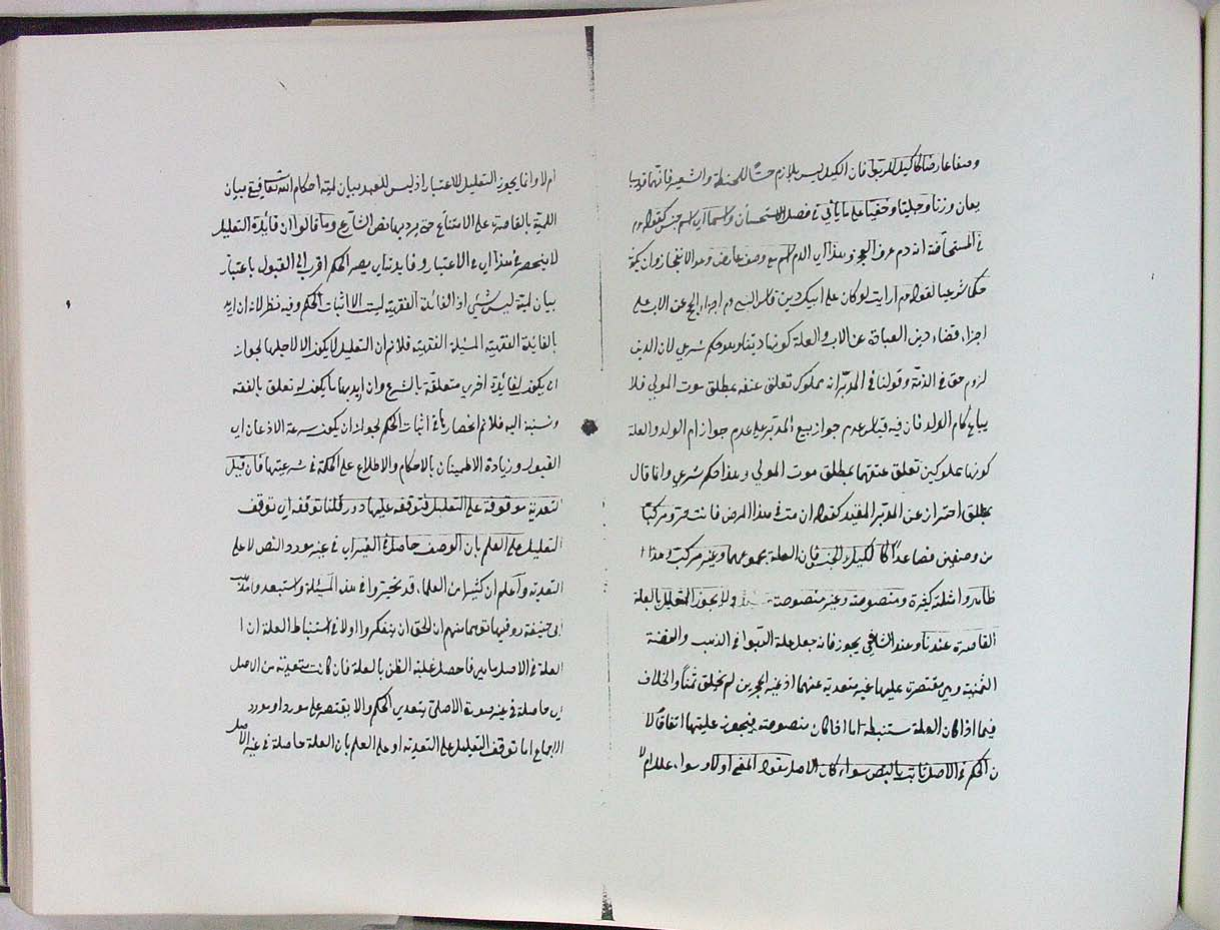 وصفا عارضا كالكيل للربوا فان الكيل ليس بلازم حسًّا للحنطة والشعير فانهما قد يبا
يعان وزنا وجليا وخفيا على ما يأتي في فصل الاستحسان واسما اي اسم جنس كقوله عم
في المستحاضة انه دم عرق انفجر وهذا اي الدم اسم مع وصف عارض وهو الانفجار وان يكون
حكما شرعيا لقوله عم ارايت لو كان على ابيك دين قاس النبي عم اجزاء الحج عن الاب على
اجزاء قضاء دين العباد عن الاب والعلة كونها دينا وهو حكم شرعي لان الدين
لزوم حق في الذمة وقولنا في المدبر انه مملوك تعلق عتقه بمطلق موت المولي فلا
يباع كام الولد فان فيه قياس عدم جواز بيع المدبر على عدم جواز ام الولد والعلة
كونهما مملوكين تعلق عتقهما بمطلق موت المولي وهذا حكم شرعي وانما قال
بمطلق احتراز عن المدبر المقيد كقوله ان مت في هذا المرض فانت حر ومركبًا
من وصفين فصاعدًا كالكيل والجنس فان العلة مجموعهما وغير مركب وهذا
ظاهر وامثلة كثيرة ومنصوصة وغير منصوصة ولا يجوز التعليل بالعلة
القاصرة عندنا وعند الشافعي يجوز فانه جعل علة الربوا في الذهب والفضة
الثمنية وهي مقتصرة عليهما غير متعدية عنهما اذ غير الحجرين لم يخلق ثمنًا والخلاف
فيما اذا كان العلة مستنبطة اما اذا كان منصوصة فيجوز عليتها اتفاقًا لا
ن الحكم في الاصل ثابت بالنص سواء كان الاصل معقول المعنى اولا وسواء علل ام لا
ام لا وانما يجوز التعليل للاعتبار اذ ليس للعبد بيان لمية احكام الله تعالى فبيان
اللمية بالقاصرة على الامتناع حتى يرد بها نص الشارع وما قالوا ان فايدة التعليل
لا ينحصر في هذا اي في الاعتبار وفايدته ان يصير الحكم اقرب الى القبول باعتبار
بيان لمية ليس بشئ اذ الفائدة الفقهية ليست الا اثبات الحكم وفيه نظر لانه ان اريد
بالفائدة الفقهية المسئلة الفقهية فلا نم ان التعليل لا يكون الا لاجلها لجواز
ان يكون لفائدة اخري متعلقة بالشرع وان اريد بها ما يكون له تعلق بالفقه
ونسبة اليه فلا نم انحصارها في اثبات الحكم لجواز ان يكون سرعة الاذعان اي
القبول وزيادة الاطمينان بالاحكام والاطلاع على الحكمة في شرعيتها فان قيل
التعدية موقوفة على التعليل فتوقفه عليها دور قلنا توقفه اي توقف
التعليل على العلم بان الوصف حاصل في الغير اي في غير مورد النص لا على
التعدية واعلم ان كثيرا من العلماء قد تحيروا في هذه المسئلة واستبعدوا مذهب
ابي حنيفة رح فيها توهما منهم ان الحق ان يتفكروا اولا في استنباط العلة ان ا
العلة في الاصل ما هي فاذا حصل غلبة الظن بالعلة فان كانت متعدية من الاصل
اي حاصلة في غير صورة الاصل يتعدي الحكم والا يقتصر على مورد النص او مورد
الاجماع اما توقف التعليل على التعدية او على العلم بان العلة حاصلة في غير الاصل